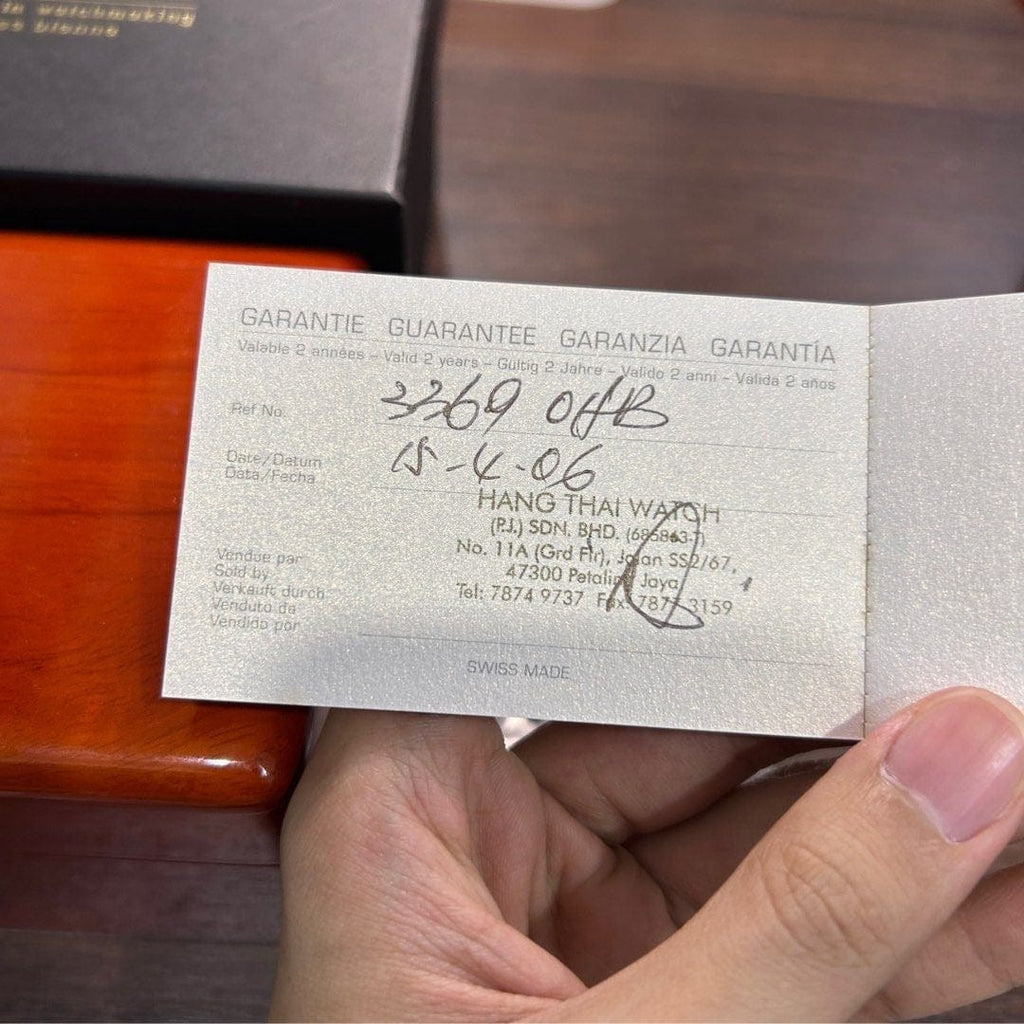 in watchmaking
GARANTIE GUARANTEE GARANZIA GARANTÍA
Valable 2 années – Valid 2 years – Gültig 2 Jahre – Valido 2 anni – Valida 2 años
Ref No. 3369
Date/Datum 15-4-06
Data/Fecha
HANG THAI WATCH
(P.J.) SDN. BHD.
No. 11A (Grd Flr), Jalan SS2/67,
47300 Petaling Jaya
Tel: 7874 9737 Fax: 3159
Vendue par
Sold by
Verkauft durch
Venduto da
Vendido por
SWISS MADE